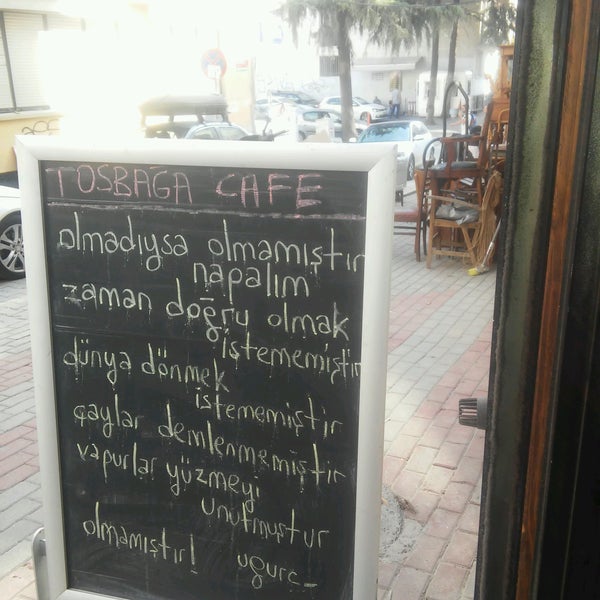 TOSBAĞA CAFE
olmadıysa olmamıştır
napalım
zaman doğru olmak
istememiştir
dünya dönmek
istememiştir
çaylar demlenmemiştir
vapurlar yüzmeyi
unutmuştur
olmamıştır! uğurc_